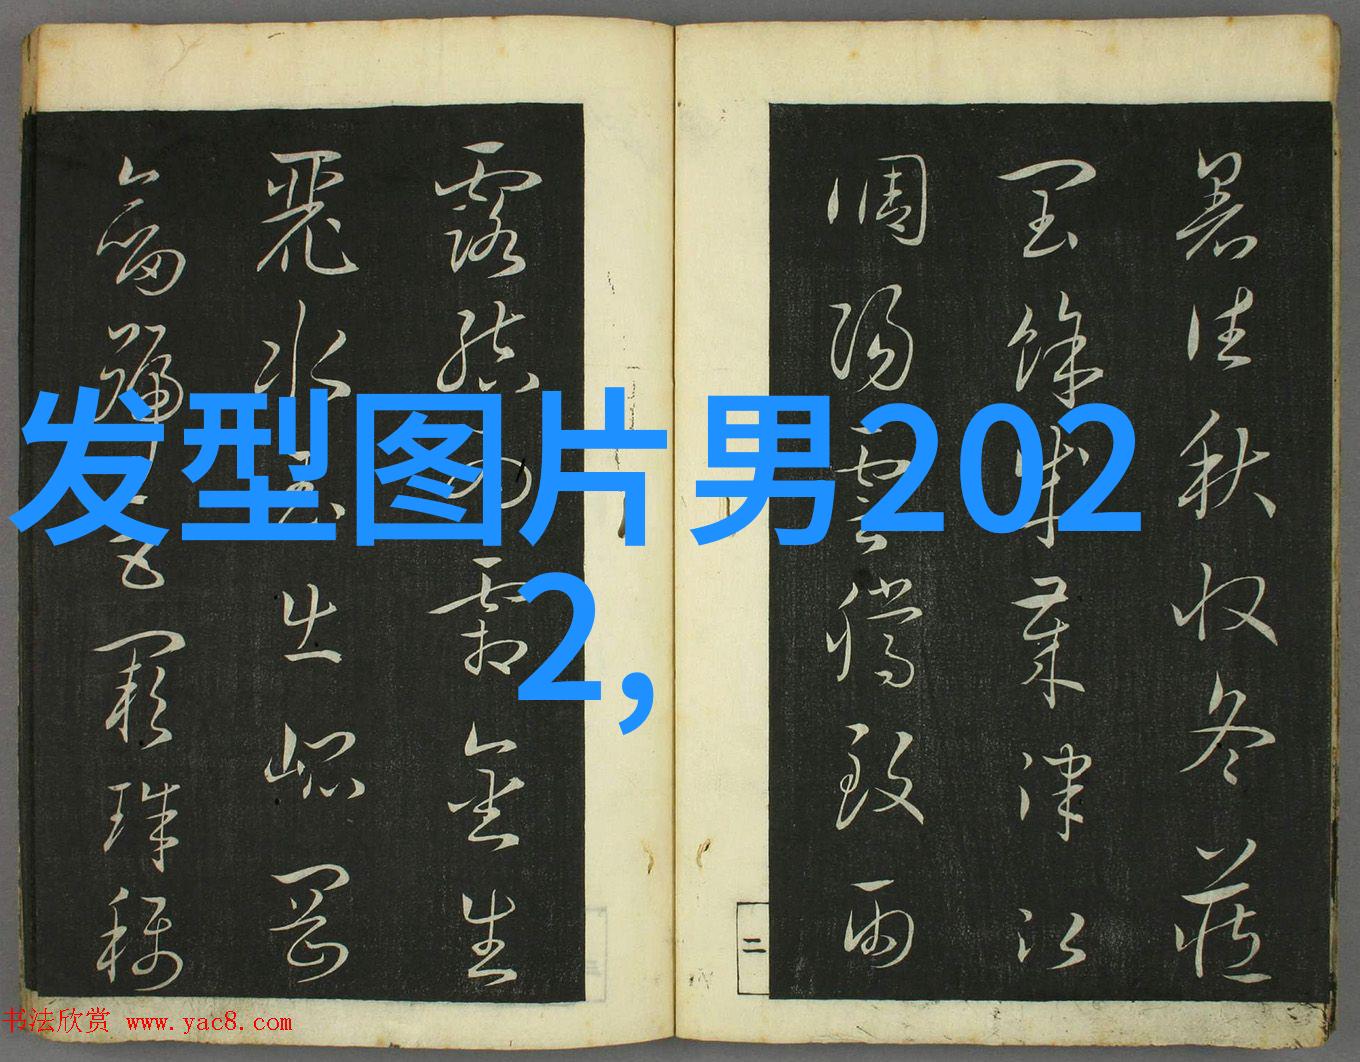 发型图片男202
2,
暑往秋收冬藏
閏餘成歲律呂
調陽雲騰致雨
二
露結為霜金生
麗水玉出崐岡
劍號巨闕珠稱
书法欣赏 www.yac8.com